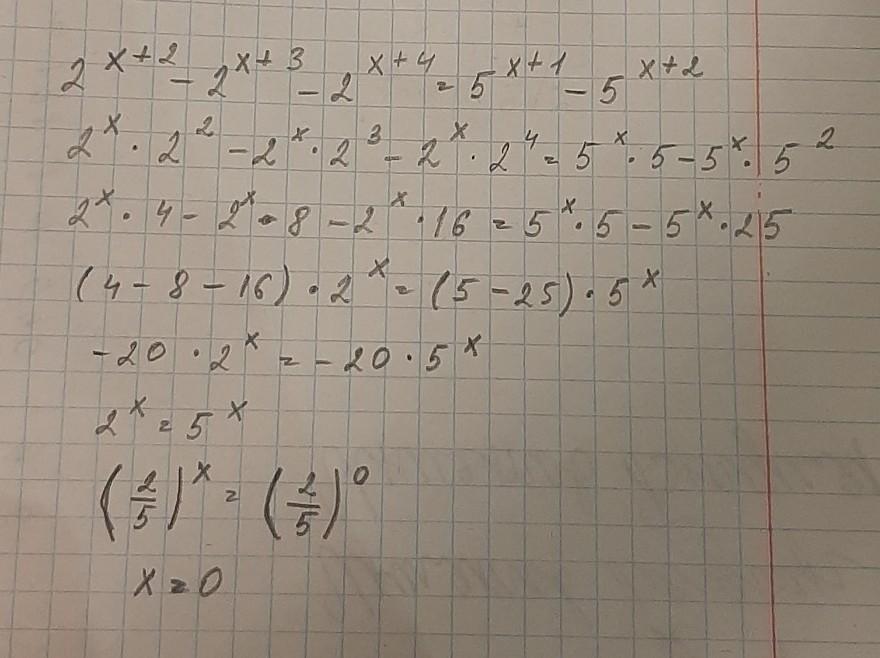 2^{x+2} - 2^{x+3} - 2^{x+4} = 5^{x+1} - 5^{x+2}
2^x · 2^2 - 2^x · 2^3 - 2^x · 2^4 = 5^x · 5 - 5^x · 5^2
2^x · 4 - 2^x · 8 - 2^x · 16 = 5^x · 5 - 5^x · 25
(4 - 8 - 16) · 2^x = (5 - 25) · 5^x
-20 · 2^x = -20 · 5^x
2^x = 5^x
(2/5)^x = (2/5)^0
x = 0